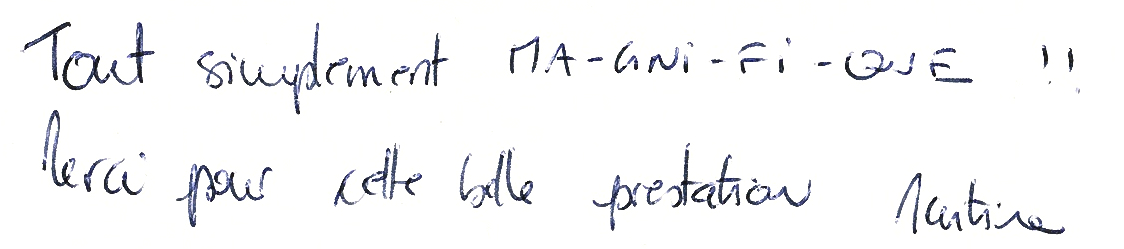 Tout simplement MA-GNi-Fi-QUE !!
Merci pour cette belle prestation Martine